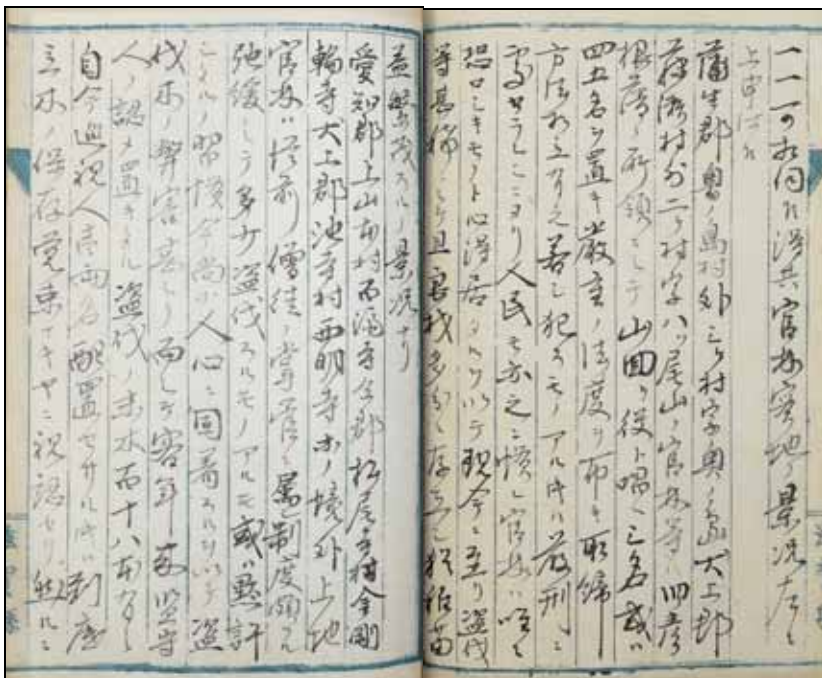 相伺候得共官林実地ノ景況左ニ
上申仕候
蒲生郡奥ノ島村外三ヶ村字奥ノ島犬上郡
村外二ヶ村字八ツ尾山ノ官林等ハ旧彦
根藩ノ所領ニシテ山回リ役ト唱ヘ三名或ハ
四五名ヲ置キ厳重ノ法度ヲ布キ取締
方法相立有之若シ犯スモノアルキハ厳刑ニ
処セラレシニヨリ人民モ亦之ニ慣レ官林ハ唯々
恐ロシキモノト心得居タルヲ以テ現今ニ至リ盗伐
等甚稀ニシテ且良材多分ニ存立シ稚苗
益繁茂スルノ景況ナリ
愛知郡上山本村百済寺仝郡松尾寺村金剛
輪寺犬上郡池寺村西明寺等ノ境外上地
官林ハ従前ノ僧徒ノ掌管ニ属シ制度頗ル
弛緩ニシテ多少盗伐スルモノアルモ或ハ黙許
シタルノ習慣今尚ホ人心ニ固着スルヲ以テ盗
伐木ノ弊害甚シク而シテ客年来監守
人ノ認メ置キタル盗伐ノ末木百十八本ナリ
自今巡視人壱両名配置セサルキハ到底
立木ノ保存覚束ナキヤニ視認セリ然ルニ